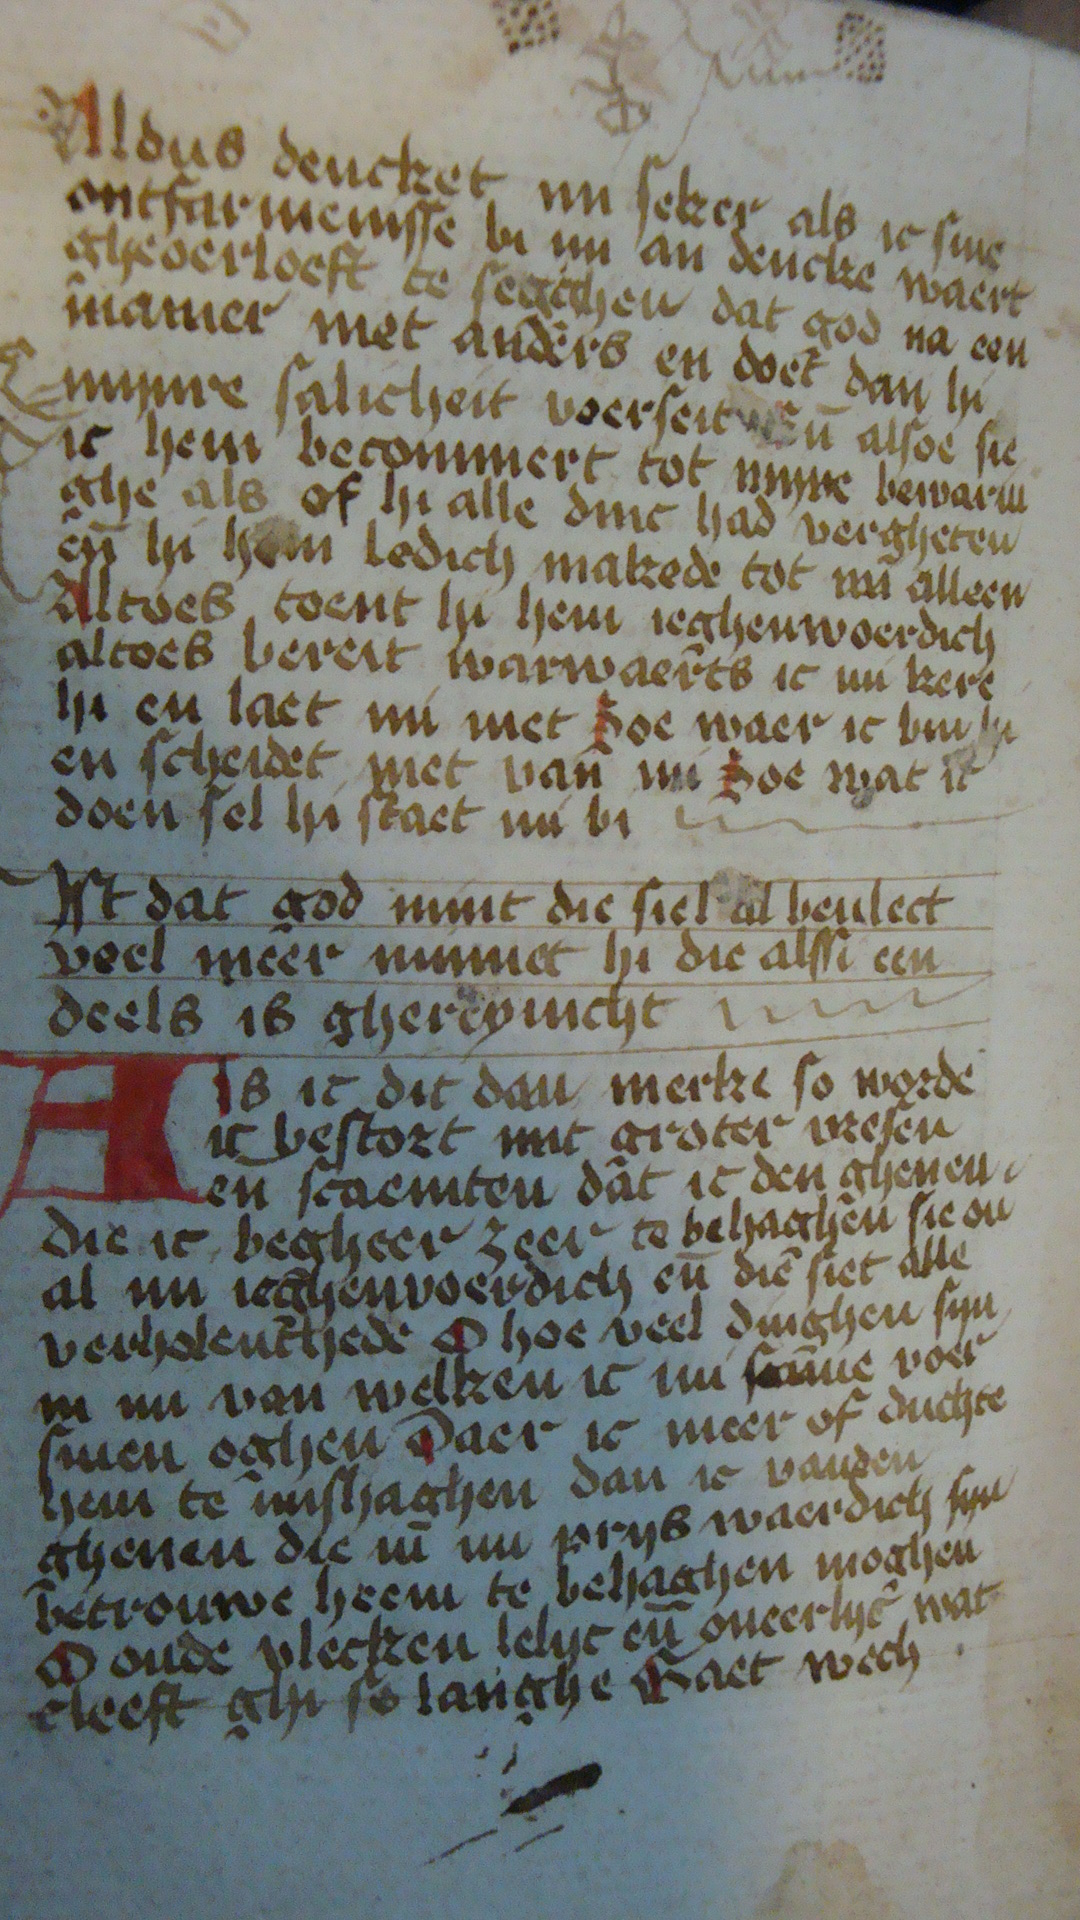 Aldus dencket mi seker als ic sine
ontfarmenisse bi mi an dencke waert
gheoerloeft te segghen dat god na een
manier niet anders en doet dan hi
mynre salicheit voerseit eñ alsoe sie
ic hem becommert tot mynre bewarin
ghe als of hi alle dinc had vergheten
eñ hi hem ledich makede tot mi alleen
Altoes toent hi hem ieghenwoerdich
altoes bereit warwaerts ic mi kere
hi en laet mi niet Soe waer ic bin hi
en scheidet niet van mi Soe wat ic
doen sel hi staet mi bi
Ist dat god mint die siel al bevlect
veel meer minnet hi die alssi een
deels is ghereynicht
Als ic dit dan merke so worde
ic bestort mit groter vresen
en scaemten dat ic den ghenen
die ic begheer zeer te behaghen sie on
al mi ieghenwoerdich eñ die siet alle
verholenthede O hoe veel dinghen syn
in mi van welken ic mi scame voer
sinen oghen Daer ic meer of duchte
hem te mishaghen dan ic vanden
ghenen die in mi prys waerdich syn
betrouwe heem te behaghen moghen
O oude vlecken lelyc eñ oneerlyc wat
cleeft ghi so langhe Gaet wech